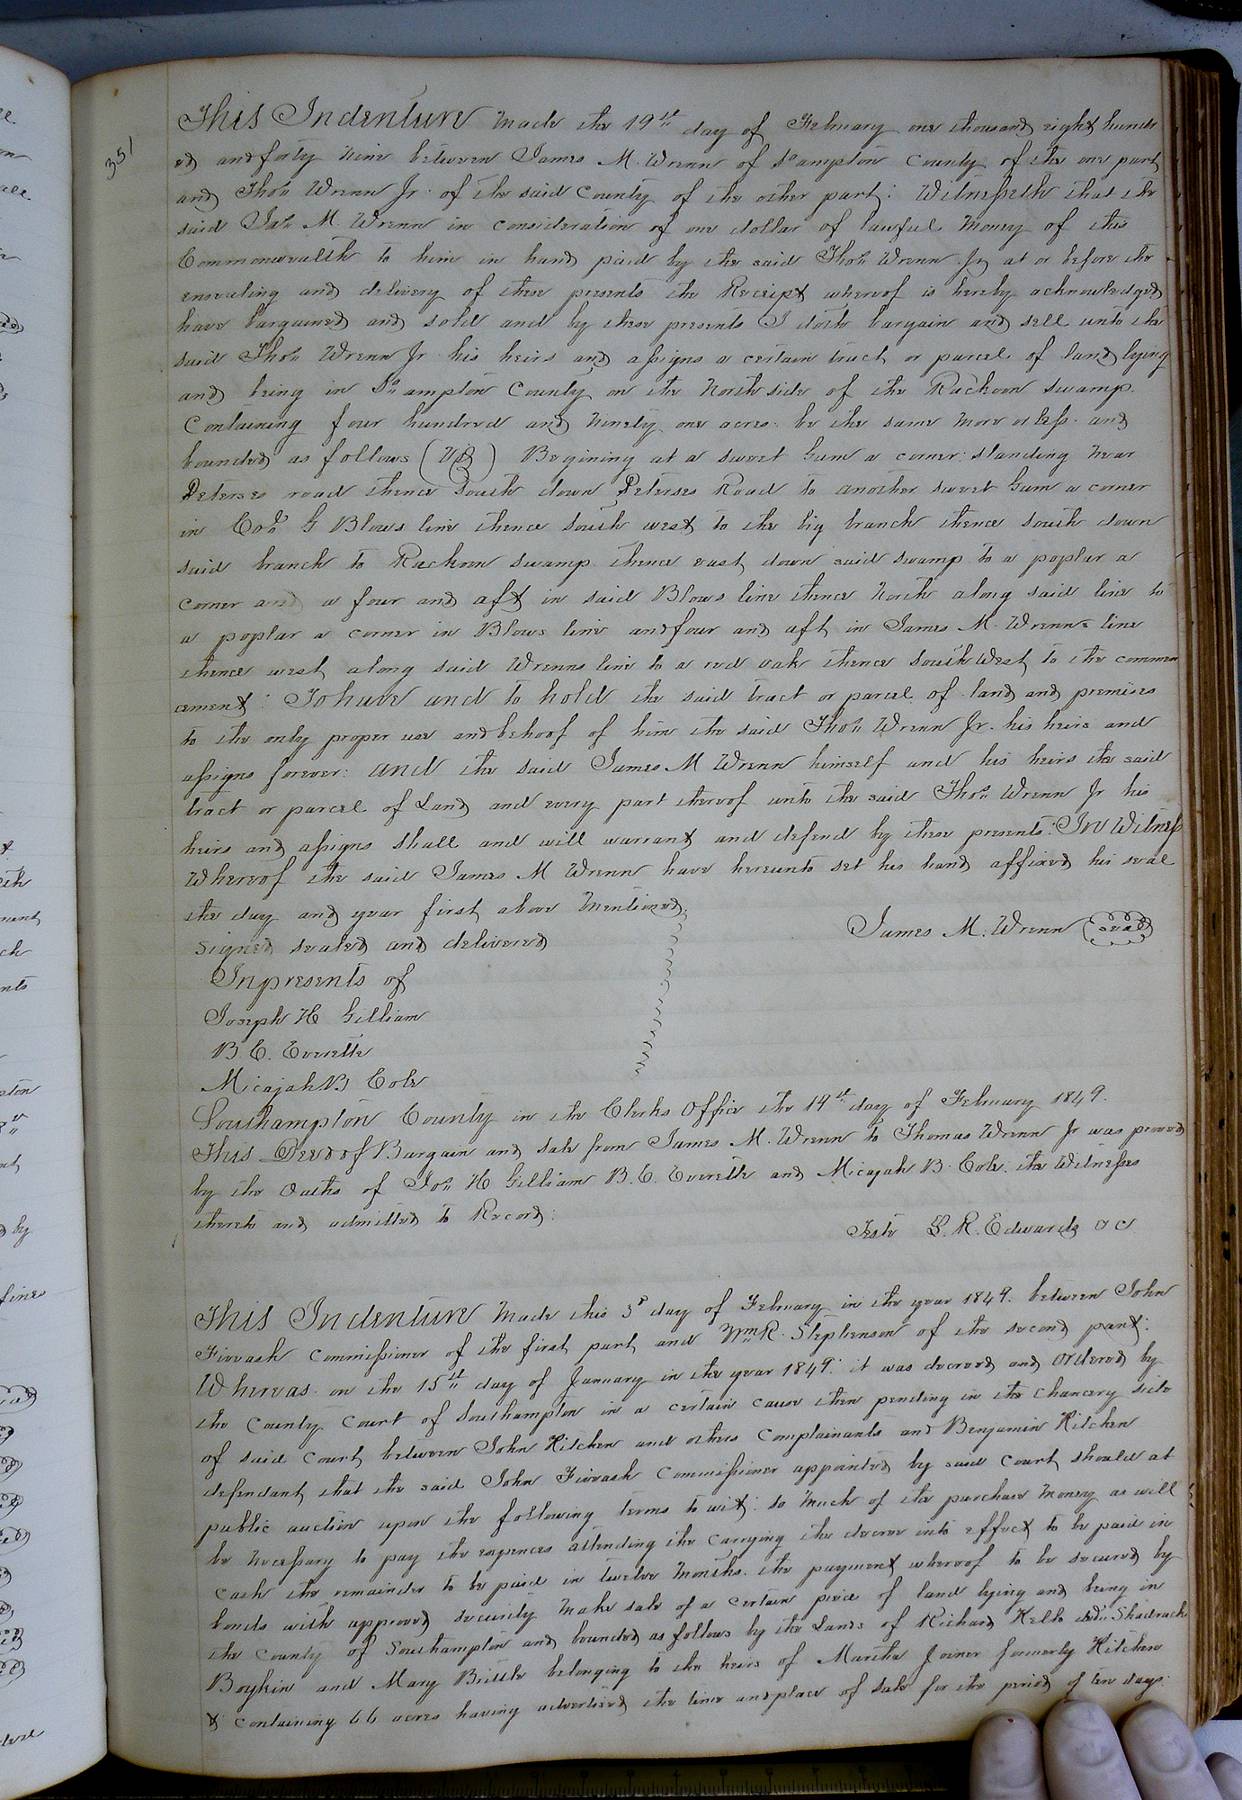 351
This Indenture Made the 19th day of February one thousand eight hundr
ed and forty nine between James M. Wrenn of So ampton County of the one part
and Thos Wrenn Jr. of the said County of the other part: Witnesseth that the
said Jas M. Wrenn in consideration of one dollar of lawful Money of this
Commonwealth to him in hand paid by the said Thos Wrenn Jr at or before the
ensealing and delivery of these presents the Receipt whereof is hereby acknowledged
have bargained and sold and by these presents I doth bargain and sell unto the
said Thos Wrenn Jr his heirs and assigns a certain tract or parcel of land lying
and being in So ampton County on the North side of the Rackoon swamp.
Containing four hundred and Ninety one acres be the same more or less and
bounded as follows (Viz) Begining at a sweet Gum a corner standing near
Peterses road thence South down Peterses Road to another sweet Gum a corner
in Colo G Blows line thence South west to the big branch thence south down
said branch to Rackoon swamp thence east down said swamp to a poplar a
corner and a four and aft in said Blows line thence North along said line to
a poplar a corner in Blows line and four and aft in James M. Wrenns line
thence west along said Wrenns line to a red oak thence South West to the commen
cement: To have and to hold the said tract or parcel of land and premises
to the only proper use and behoof of him the said Thos Wrenn Jr. his heirs and
assigns forever: and the said James M Wrenn himself and his heirs the said
tract or parcel of Land and every part thereof unto the said Thos Wrenn Jr his
heirs and assigns shall and will warrant and defend by these presents. In Witness
Whereof the said James M Wrenn have hereunto set his hand affixed his seal
the day and year first above Mentioned.
Signed sealed and delivered
James M. Wrenn (seal)
In presents of
Joseph H Gilliam
B. E. Everette
Micajah B Cole
Southampton County in the Clerks Office the 19th day of February 1849.
This Deed of Bargain and Sale from James M. Wrenn to Thomas Wrenn Jr was proved
by the Oaths of Jos H Gilliam B. E. Everette and Micajah B. Cole the Witnesses
thereto and admitted to Record:
Teste L. R. Edwards
This Indenture Made this 3d day of February in the year 1849. between John
Fiveash Commissioner of the first part and Wm R. Stephenson of the second part:
Whereas on the 15th day of January in the year 1849: it was decreed and ordered by
the County Court of Southampton in a certain cause then pending in the Chancery side
of said Court between John Kitchen and others Complainants and Benjamin Kitchen
defendant, that the said John Fiveash Commissioner appointed by said Court should at
public auction upon the following terms to wit: So Much of the purchase Money as will
be Necessary to pay the expences attending the carrying the decree into effect to be paid in
Cash the remainder to be paid in twelve Months. the payment whereof to be secured by
bonds with approved security Make sale of a certain peice of land lying and being in
the County of Southampton and bounded as follows by the Lands of Richard Kello Shadrack
Boykin and Mary Brittle belonging to the heirs of Martha Joiner formerly Kitchen
& Containing 66 acres having advertised the time and place of sale for the period of ten days: